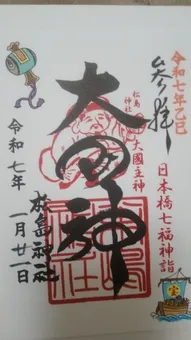 令和七年乙巳
参拝
日本橋七福神詣
松島神社
大國主神
大国神
松島神社
令和七年
一月廿一日